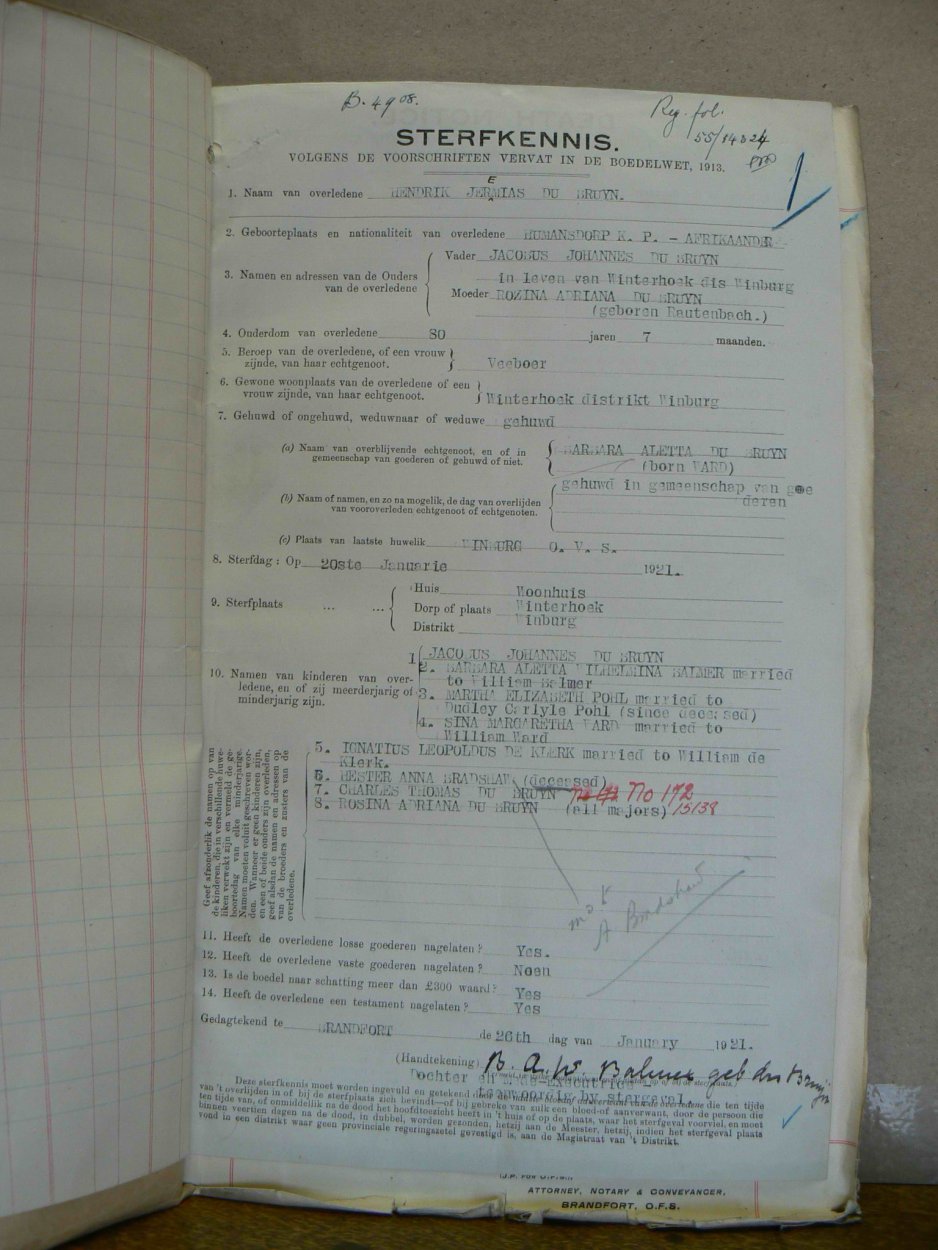 B. 49 08.
Reg. fol.
55/14324
STERFKENNIS.
VOLGENS DE VOORSCHRIFTEN VERVAT IN DE BOEDELWET, 1913.
E
1. Naam van overledene HENDRIK JERMIAS DU BRUYN.
2. Geboorteplaats en nationaliteit van overledene HUMANSDORP K. P. - AFRIKAANDER
3. Namen en adressen van de Ouders van de overledene
Vader JACOBUS JOHANNES DU BRUYN
in leven van Winterhoek dis Winburg
Moeder ROZINA ADRIANA DU BRUYN
(geboren Rautenbach.)
4. Ouderdom van overledene 80 jaren 7 maanden.
5. Beroep van de overledene, of een vrouw
zijnde, van haar echtgenoot. Veeboer
6. Gewone woonplaats van de overledene of een
vrouw zijnde, van haar echtgenoot. Winterhoek distrikt Winburg
7. Gehuwd of ongehuwd, weduwnaar of weduwe gehuwd
(a) Naam van overblijvende echtgenoot, en of in BARBARA ALETTA DU BRUYN
gemeenschap van goederen of gehuwd of niet. (born WARD)
gehuwd in gemeenschap van goe
(b) Naam of namen, en zo na mogelik, de dag van overlijden deren
van vooroverleden echtgenoot of echtgenoten.
(c) Plaats van laatste huwelik WINBURG O. V. S.
8. Sterfdag: Op 20ste Januarie 1921.
9. Sterfplaats ... ...
Huis Woonhuis
Dorp of plaats Winterhoek
Distrikt Winburg
10. Namen van kinderen van over-
ledene, en of zij meerderjarig of
minderjarig zijn.
1 JACOBUS JOHANNES DU BRUYN
2. BARBARA ALETTA WILHELMINA BALMER married
to William Balmer
3. MARTHA ELIZABETH POHL married to
Dudley Carlyle Pohl (since deceased)
4. SINA MARGARETHA WARD married to
William Ward
5. IGNATIUS LEOPOLDUS DE KLERK married to William de
Klerk.
6. HESTER ANNA BRADSHAW (deceased)
7. CHARLES THOMAS DU BRUYN No 172
8. ROSINA ADRIANA DU BRUYN (all majors) 15138
Geef afzonderlik de namen op van
de kinderen, die in verschillende huwe-
liken verwekt zijn en vermeld de ge-
boortedag van elke minderjarige.
Namen moeten voluit geschreven wor-
den. Wanneer er geen kinderen zijn,
en een of beide ouders zijn overleden,
geef alsdan de namen en adressen op
van de broeders en zusters van de
overledene.
A Bradshaw
11. Heeft de overledene losse goederen nagelaten? Yes.
12. Heeft de overledene vaste goederen nagelaten? Noen
13. Is de boedel naar schatting meer dan £300 waard? Yes
14. Heeft de overledene een testament nagelaten? Yes
Gedagtekend te BRANDFORT de 26th dag van January 1921.
(Handtekening) B. A. W. Balmer geb du Bruyn
Dochter en Mede-Executrice
tegenwoordig by sterfgeval
Deze sterfkennis moet worden ingevuld en getekend door de overledene die ten tijde
van 't overlijden in of bij de sterfplaats zich bevindt—of bij gebreke van zulk een bloed-of aanverwant, door de persoon die
ten tijde van, of onmiddellik na de dood het hoofdtoezicht heeft in 't huis of op de plaats, waar het sterfgeval voorviel, en moet
binnen veertien dagen na de dood, in dubbel, worden gezonden, hetzij aan de Meester, hetzij, indien het sterfgeval plaats
vond in een distrikt waar geen provinciale regeringszetel gevestigd is, aan de Magistraat van 't Distrikt.
(J.P. FOR O.F.S.),
ATTORNEY, NOTARY & CONVEYANCER,
BRANDFORT, O.F.S.